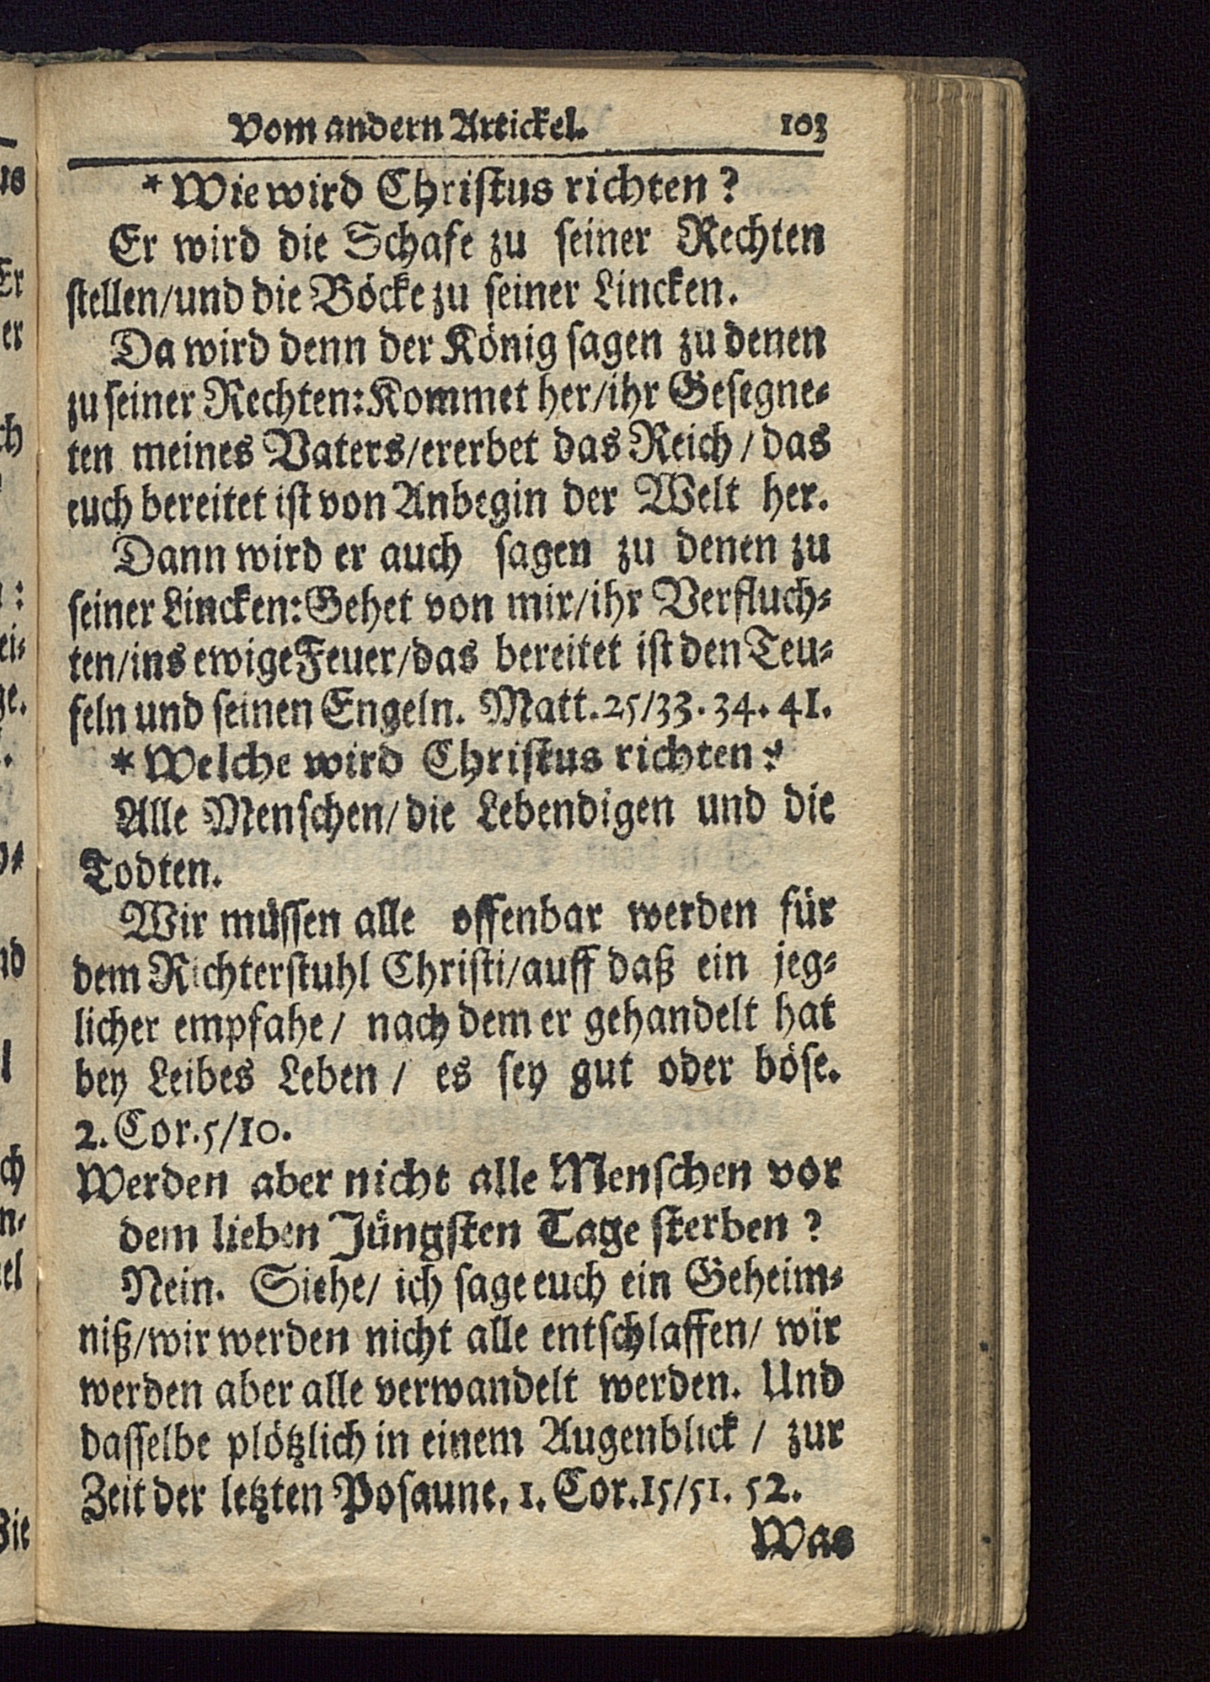 Vom andern Artickel. 103
* Wie wird Christus richten?
Er wird die Schafe zu seiner Rechten
stellen/und die Böcke zu seiner Lincken.
Da wird denn der König sagen zu denen
zu seiner Rechten: Kommet her/ihr Gesegne-
ten meines Vaters/ererbet das Reich/das
euch bereitet ist von Anbegin der Welt her.
Dann wird er auch sagen zu denen zu
seiner Lincken: Gehet von mir/ihr Verfluch-
ten/ins ewige Feuer/das bereitet ist den Teu-
feln und seinen Engeln. Matt. 25/33. 34. 41.
* Welche wird Christus richten?
Alle Menschen/die Lebendigen und die
Todten.
Wir müssen alle offenbar werden für
dem Richterstuhl Christi/auff daß ein jeg-
licher empfahe/ nach dem er gehandelt hat
bey Leibes Leben/ es sey gut oder böse.
2. Cor. 5/10.
Werden aber nicht alle Menschen vor
dem lieben Jüngsten Tage sterben?
Nein. Siehe/ ich sage euch ein Geheim-
niß/wir werden nicht alle entschlaffen/ wir
werden aber alle verwandelt werden. Und
dasselbe plötzlich in einem Augenblick/ zur
Zeit der letzten Posaune. 1. Cor. 15/51. 52.
Was